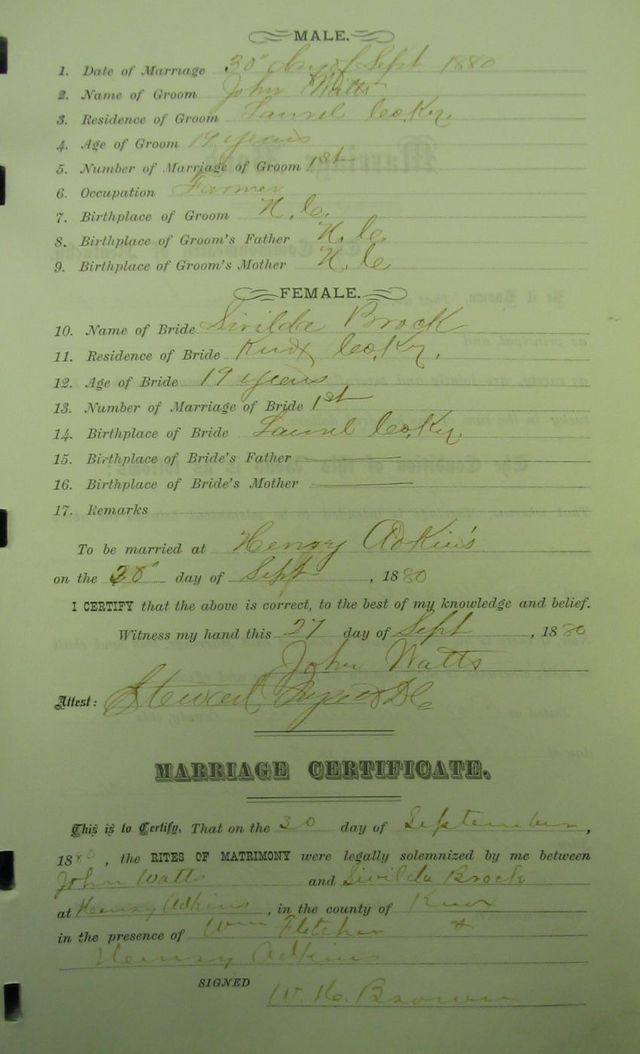 MALE.
1. Date of Marriage 30" day of Sept 1880
2. Name of Groom John Watts
3. Residence of Groom Laurel Co. Ky.
4. Age of Groom 19 years
5. Number of Marriage of Groom 1st
6. Occupation Farmer
7. Birthplace of Groom N. C.
8. Birthplace of Groom's Father N. C.
9. Birthplace of Groom's Mother N. C
FEMALE.
10. Name of Bride Sivilda Brock
11. Residence of Bride Knox Co. Ky.
12. Age of Bride 19 years
13. Number of Marriage of Bride 1st
14. Birthplace of Bride Laurel Co. Ky.
15. Birthplace of Bride's Father
16. Birthplace of Bride's Mother
17. Remarks
To be married at Henry Adkin's
on the 30" day of Sept, 1880
I CERTIFY that the above is correct, to the best of my knowledge and belief.
Witness my hand this 27 day of Sept, 1880
John Watts
Attest: Stewart DC
MARRIAGE CERTIFICATE.
This is to Certify, That on the 30 day of September,
1880, the RITES OF MATRIMONY were legally solemnized by me between
John Watts and Sivilda Brock
at Henry Adkins, in the county of Knox
in the presence of Wm Fletcher &
Henry Adkins
SIGNED W. H. Brown